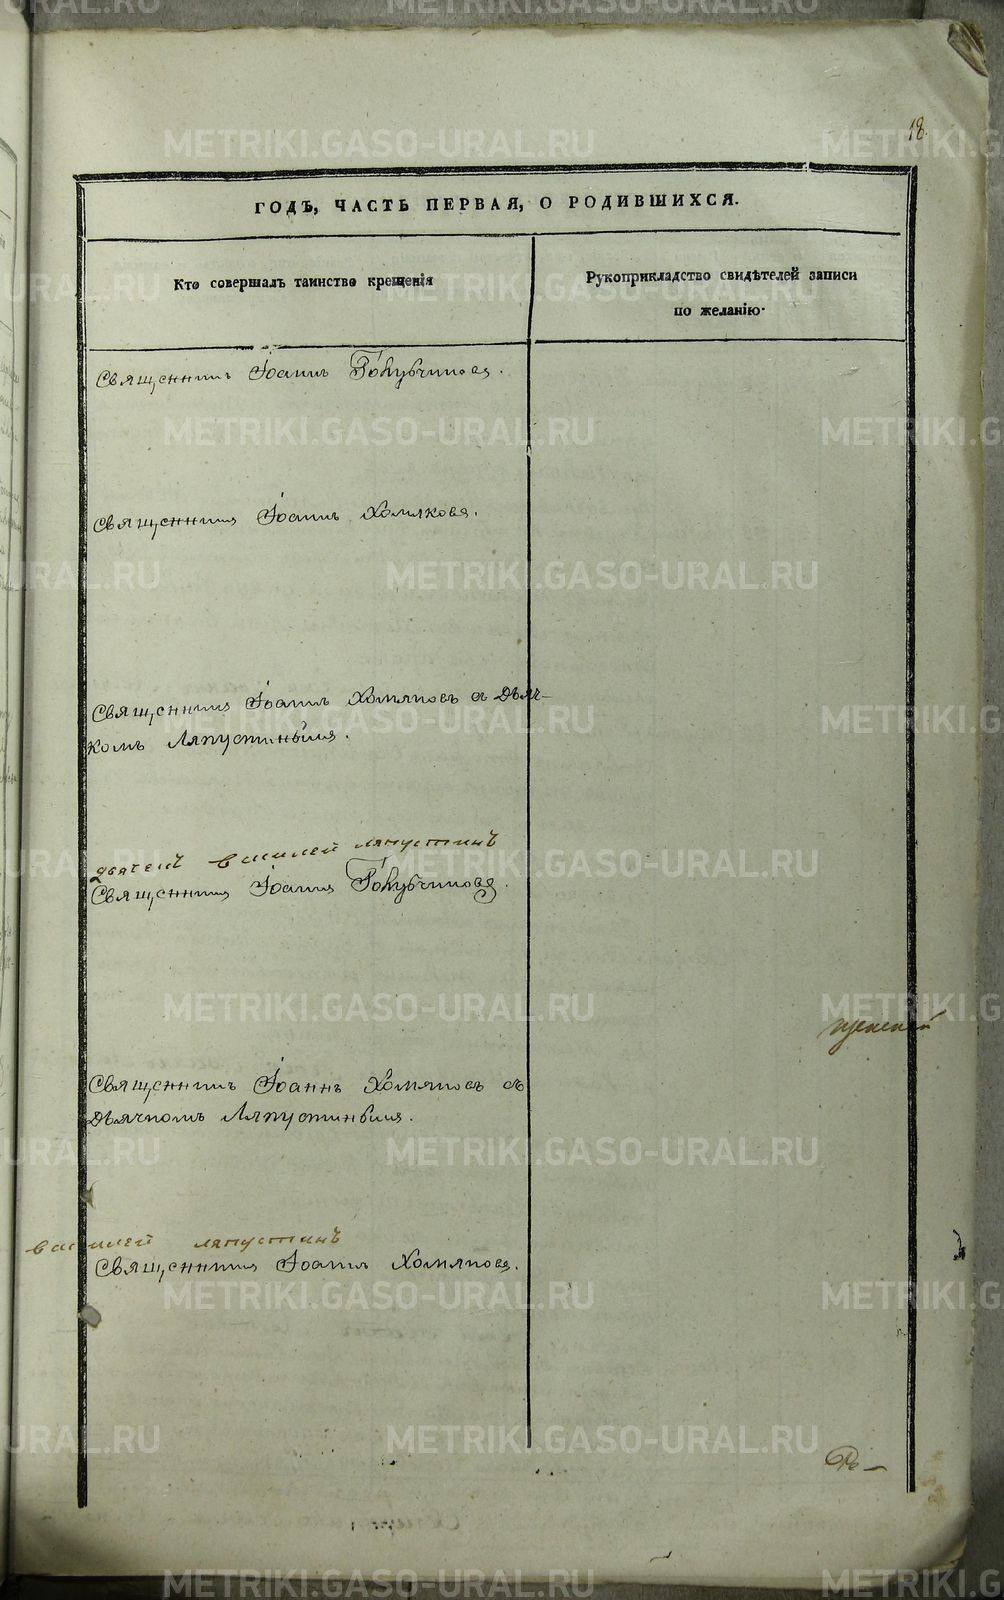 18.
ГОДЪ, ЧАСТЬ ПЕРВАЯ, О РОДИВШИХСЯ.
Кто совершалъ таинство крещенія
Рукоприкладство свидѣтелей записи
по желанію.
Священникъ Іоаннъ Голубчиковъ.
Священникъ Іоаннъ Хомяковъ.
Священникъ Іоаннъ Хомяковъ съ Дьяч-
комъ Ляпустинымъ.
василей ляпустинъ
Священникъ Іоаннъ Голубчиковъ.
Священникъ Іоаннъ Хомяковъ съ
Дьячкомъ Ляпустинымъ.
василей ляпустинъ
Священникъ Іоаннъ Хомяковъ.
METRIKI.GASO-URAL.RU